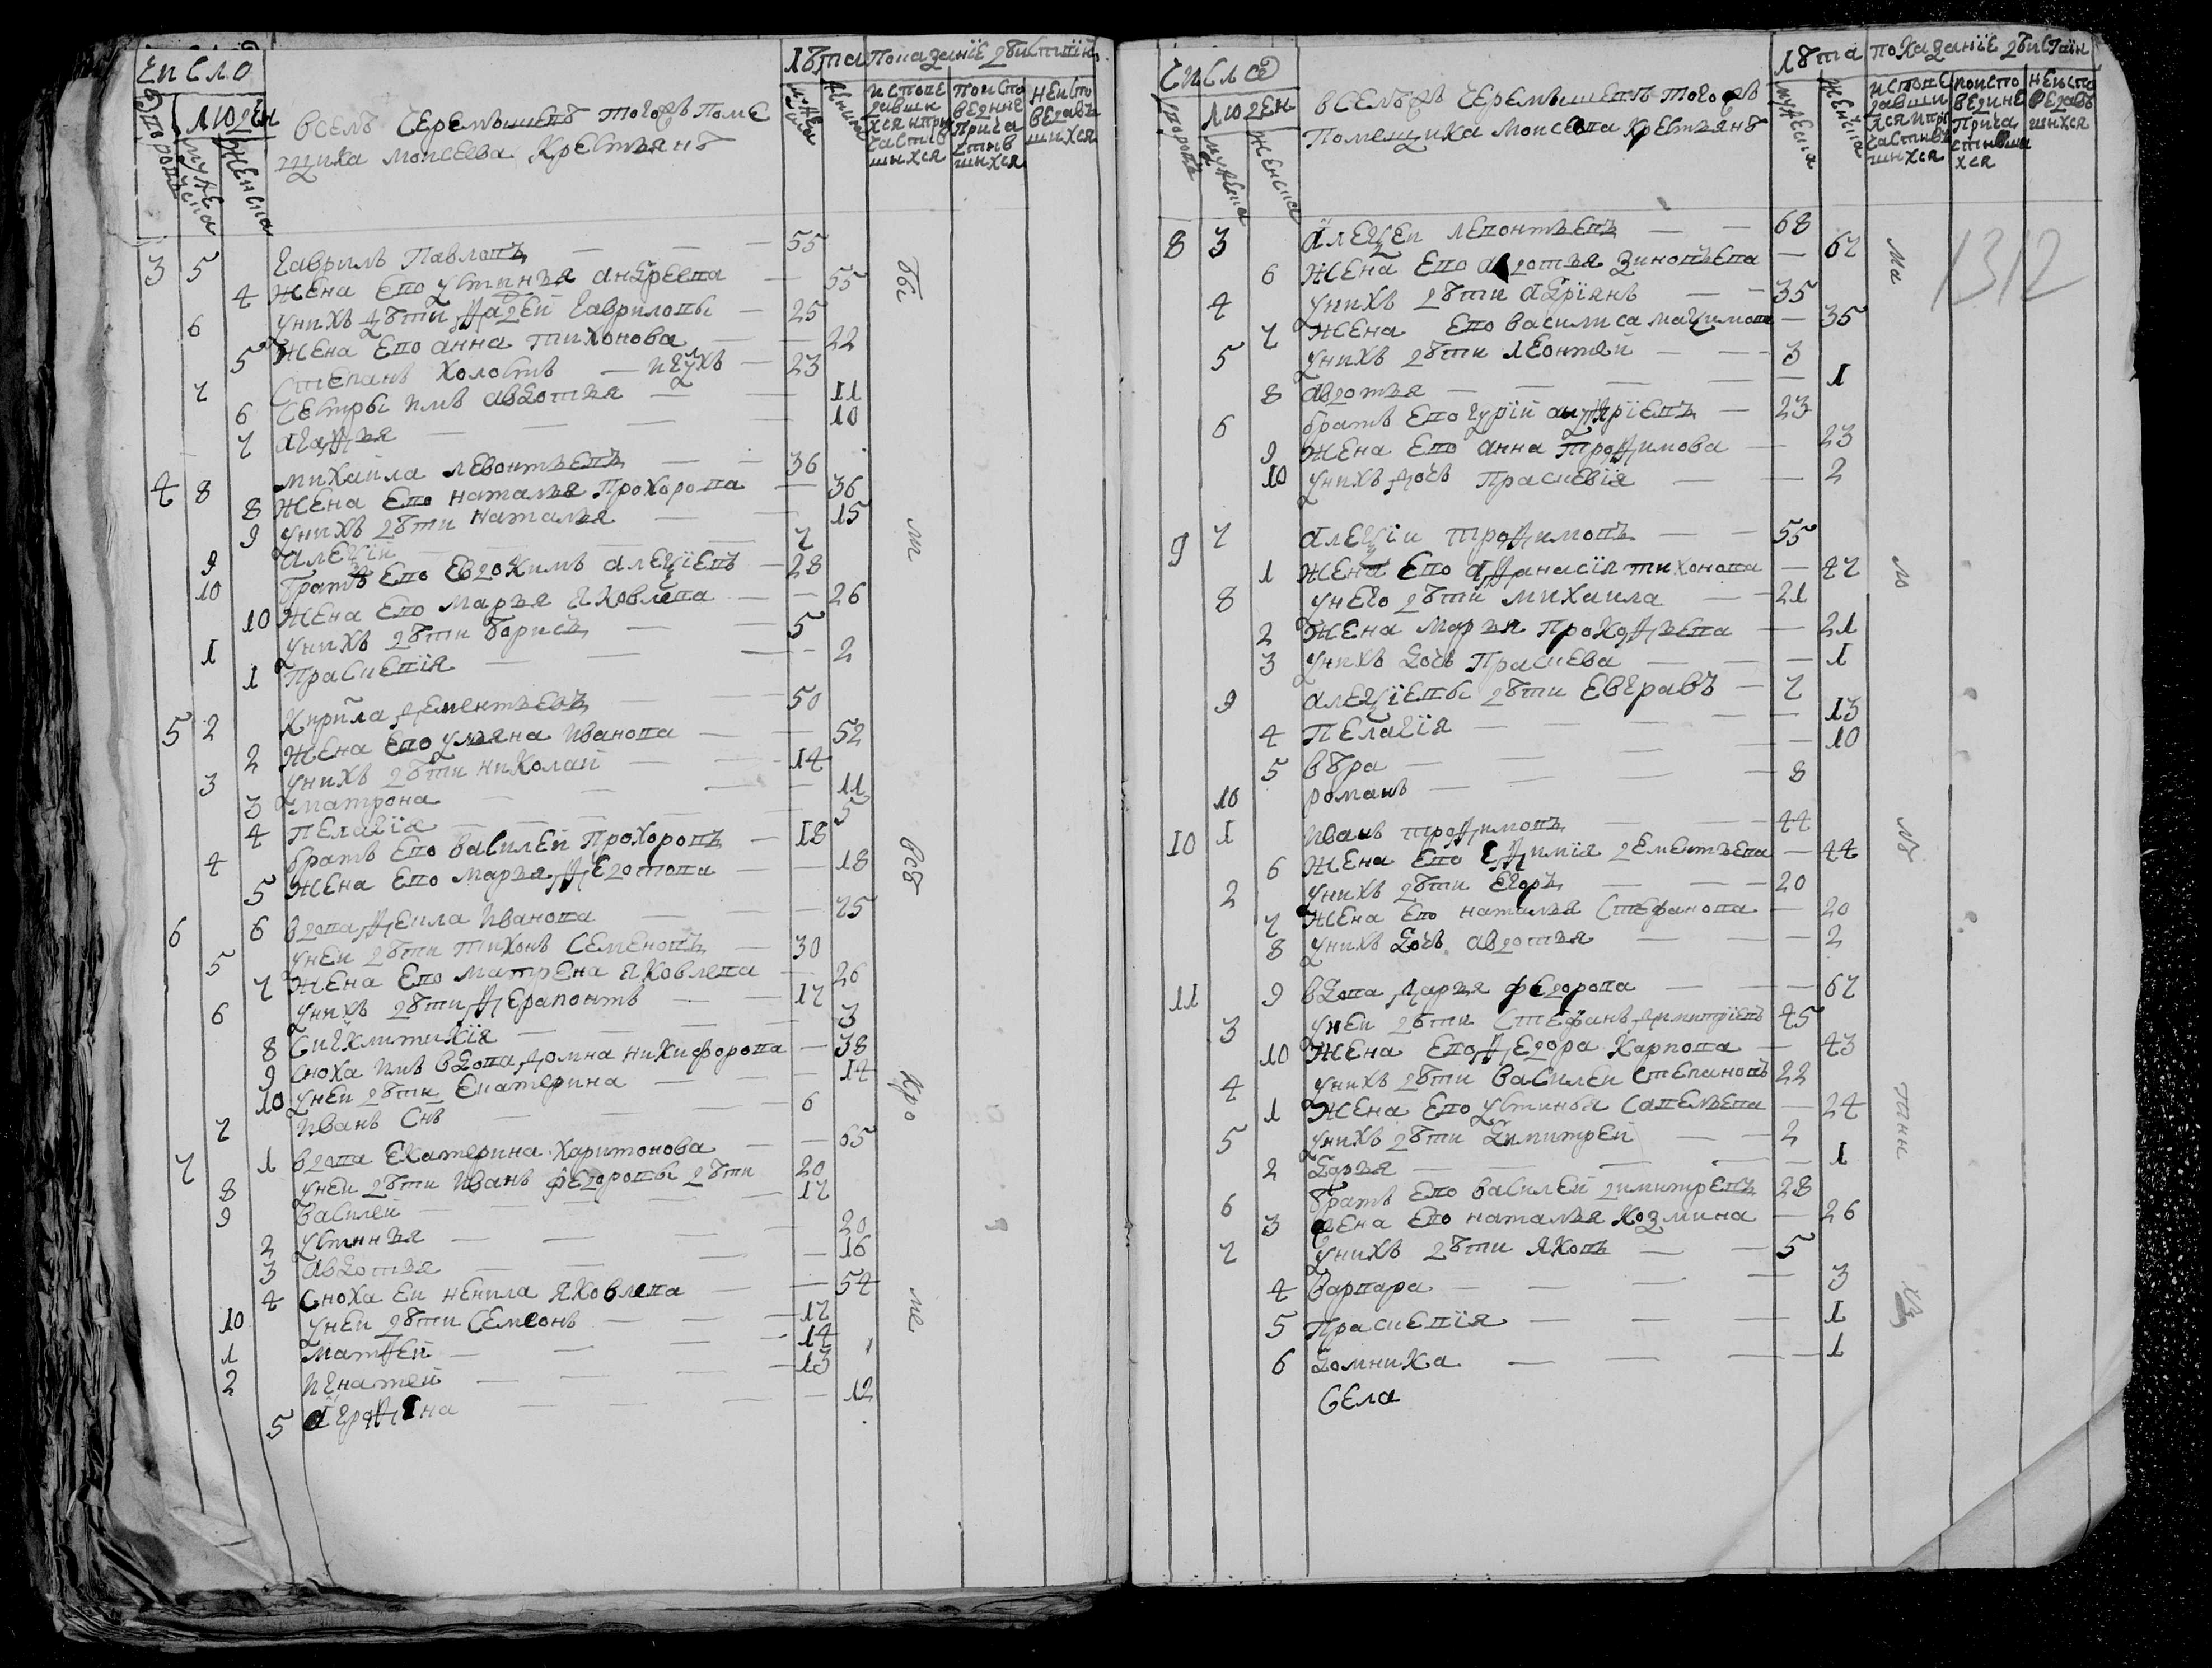 число
двороъ
людеи
мужеска
женска
в селѣ Черемышевѣ того же поме
щика Моисеева крестьянѣ
лѣта
мужеска
женска
Показаниe дѣистви
исповѣ
давши
хся и при
частив
шихся
по испо
ведине
прича
стив
шихся
не испо
ведав
шихся
3 5 Гаврилъ Павловъ 55
4 жена ево Устинья Андреева 55
6 у нихъ дѣти Фадеи Гавриловы 25
5 жена ево Анна Тихонова 22
7 Степанъ холостъ 23
6 сестры имъ Авдотья 11
7 Агафья 10
4 8 Михаила Левонтьевъ 36
8 жена ево Наталья Прохорова 36
9 у нихъ дѣти Наталья 15
9 Алеѯiи 7
10 братъ ево Евдокимъ Алеѯiевъ 28
10 жена ево Марья Яковлева 26
1 у нихъ дѣти Борисъ 5
1 Прасковiя 2
5 2 Кирила Дементьевъ 50
2 жена ево Ульяна Иванова 52
3 у нихъ дѣти Николаи 14
3 Матрона 11
4 Пелагiя 5
4 братъ ево Василеи Прохоровъ 18
5 жена ево Марья Федотова 18
6 6 вдова Фекла Иванова 75
5 у неи дѣти Тихонъ Семеновъ 30
7 жена ево Матрена Яковлева 26
6 у нихъ дѣти Ферапонтъ 17
8 Сигклитикiя 3
9 сноха имъ вдова Домна Никифорова 38
10 у неи дѣти Екатерина 14
7 Иванъ снъ 6
7 1 вдова Екатерина Харитонова 65
8 у неи дѣти Иванъ Федоровы дѣти 20
9 Василеи 17
2 Устинья 20
3 Авдотья 16
4 сноха еи Ненила Яковлева 54
10 у неи дѣти Семеонъ 17
1 Матфеи 14
2 Игнатеи 13
5 Агрофена 12
бы
ли
всѣ
кро
ме
число
двороъ
людеи
мужеска
женска
в селѣ же Черемышевѣ того же
помещика Моисеева крестьянѣ
лѣта
мужеска
женска
показанiе дѣистви
исповѣ
давши
хся и при
частив
шихся
по испо
ведине
прича
стивши
хся
не испо
ведав
шихся
1312
8 3 Алеѯеи Левонтьевъ 68
6 жена ево Авдотья Зиновьева 67
4 у нихъ дѣти Адрiянъ 35
7 жена ево Василиса Маѯимова 35
5 у нихъ дѣти Леонтеи 3
8 Авдотья 1
6 братъ ево Гурiи Андрiевъ 23
9 жена ево Анна Трофимова 23
10 у нихъ дочь Праскевiя 2
9 7 Алеѯiи Трофимовъ 55
1 жена ево Афанасiя Тихонова 47
8 у него дѣти Михаила 21
2 жена Марья Прокофьева 21
3 у нихъ дочь Праскева 1
9 Алеѯiевы дѣти Евгравъ 7
4 Пелагiя 13
5 Вѣра 10
10 Романъ 8
10 1 Иванъ Трофимовъ 44
6 жена ево Ефимiя Дементьева 44
2 у нихъ дѣти Егоръ 20
7 жена ево Наталья Стефанова 20
8 у нихъ дочь Авдотья 2
11 9 вдова Дарья Федорова 67
3 у неи дѣти Стефанъ Димитрiевъ 45
10 жена ево Федора Карпова 43
4 у нихъ дѣти Василеи Степановъ 22
1 жена ево Устинья Савельева 24
5 у нихъ дѣти Димитреи 2
2 Дарья 1
6 братъ ево Василеи Димитревъ 28
3 жена ево Наталья Козмина 26
7 у нихъ дѣти Яковъ 5
4 Варвара 3
5 Праскевiя 1
6 Домника 1
села
ма
ло
лѣ
тни
хъ